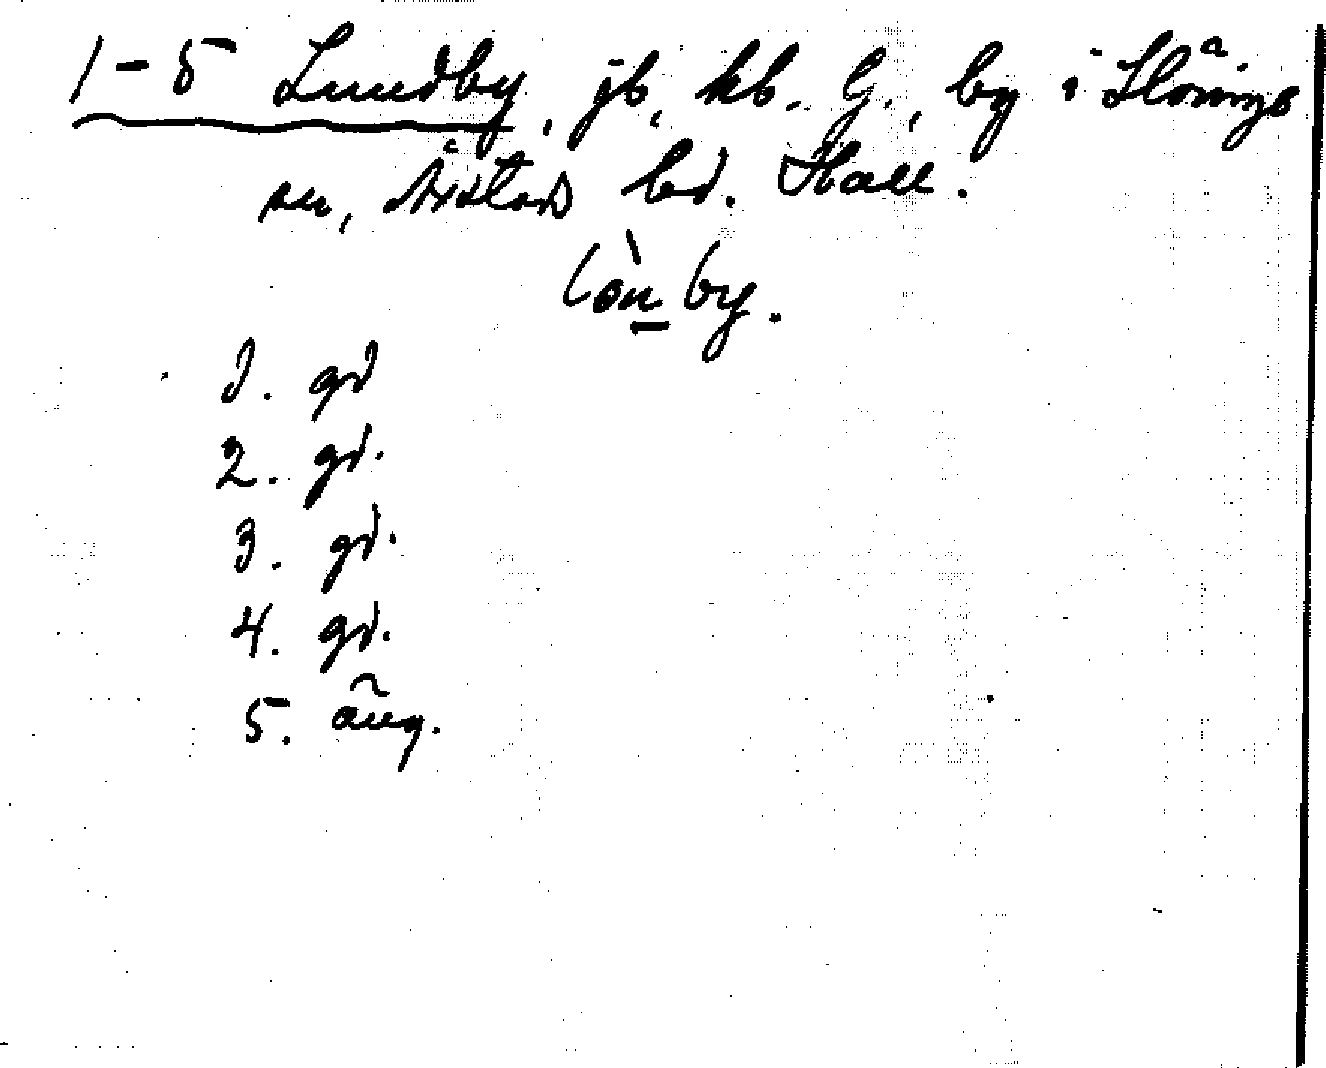 1-5 Lundby, jb, kb. G., by i Slöinge
sn, Årstad hd. Hall.
lòn by.
1. gd
2. gd.
3. gd.
4. gd.
5. äng.